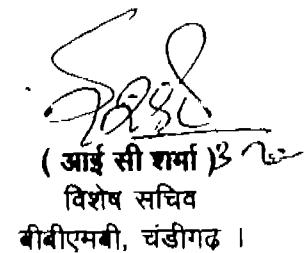 ( आई सी शर्मा )
विशेष सचिव
बीबीएमबी, चंडीगढ़ ।